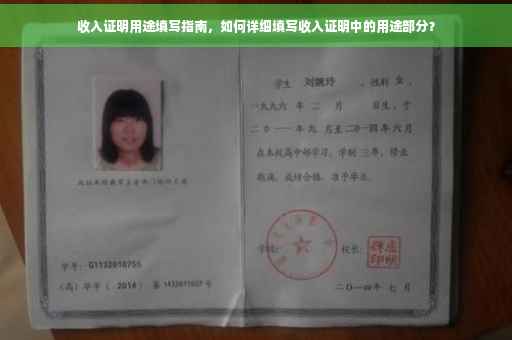 收入证明用途填写指南，如何详细填写收入证明中的用途部分？
学生 刘婉玲 ，性别 女 ，
一九九六 年 二 月 日生，于
二〇一一年九 月至二〇一四年六月
在本校高中部学习，学制 三年，修业
期满，成绩合格，准予毕业。
学校： 校长：
学号：G1132010755
（高）毕字（ 2014 ）第 1432011027 号
二〇一四年 七 月